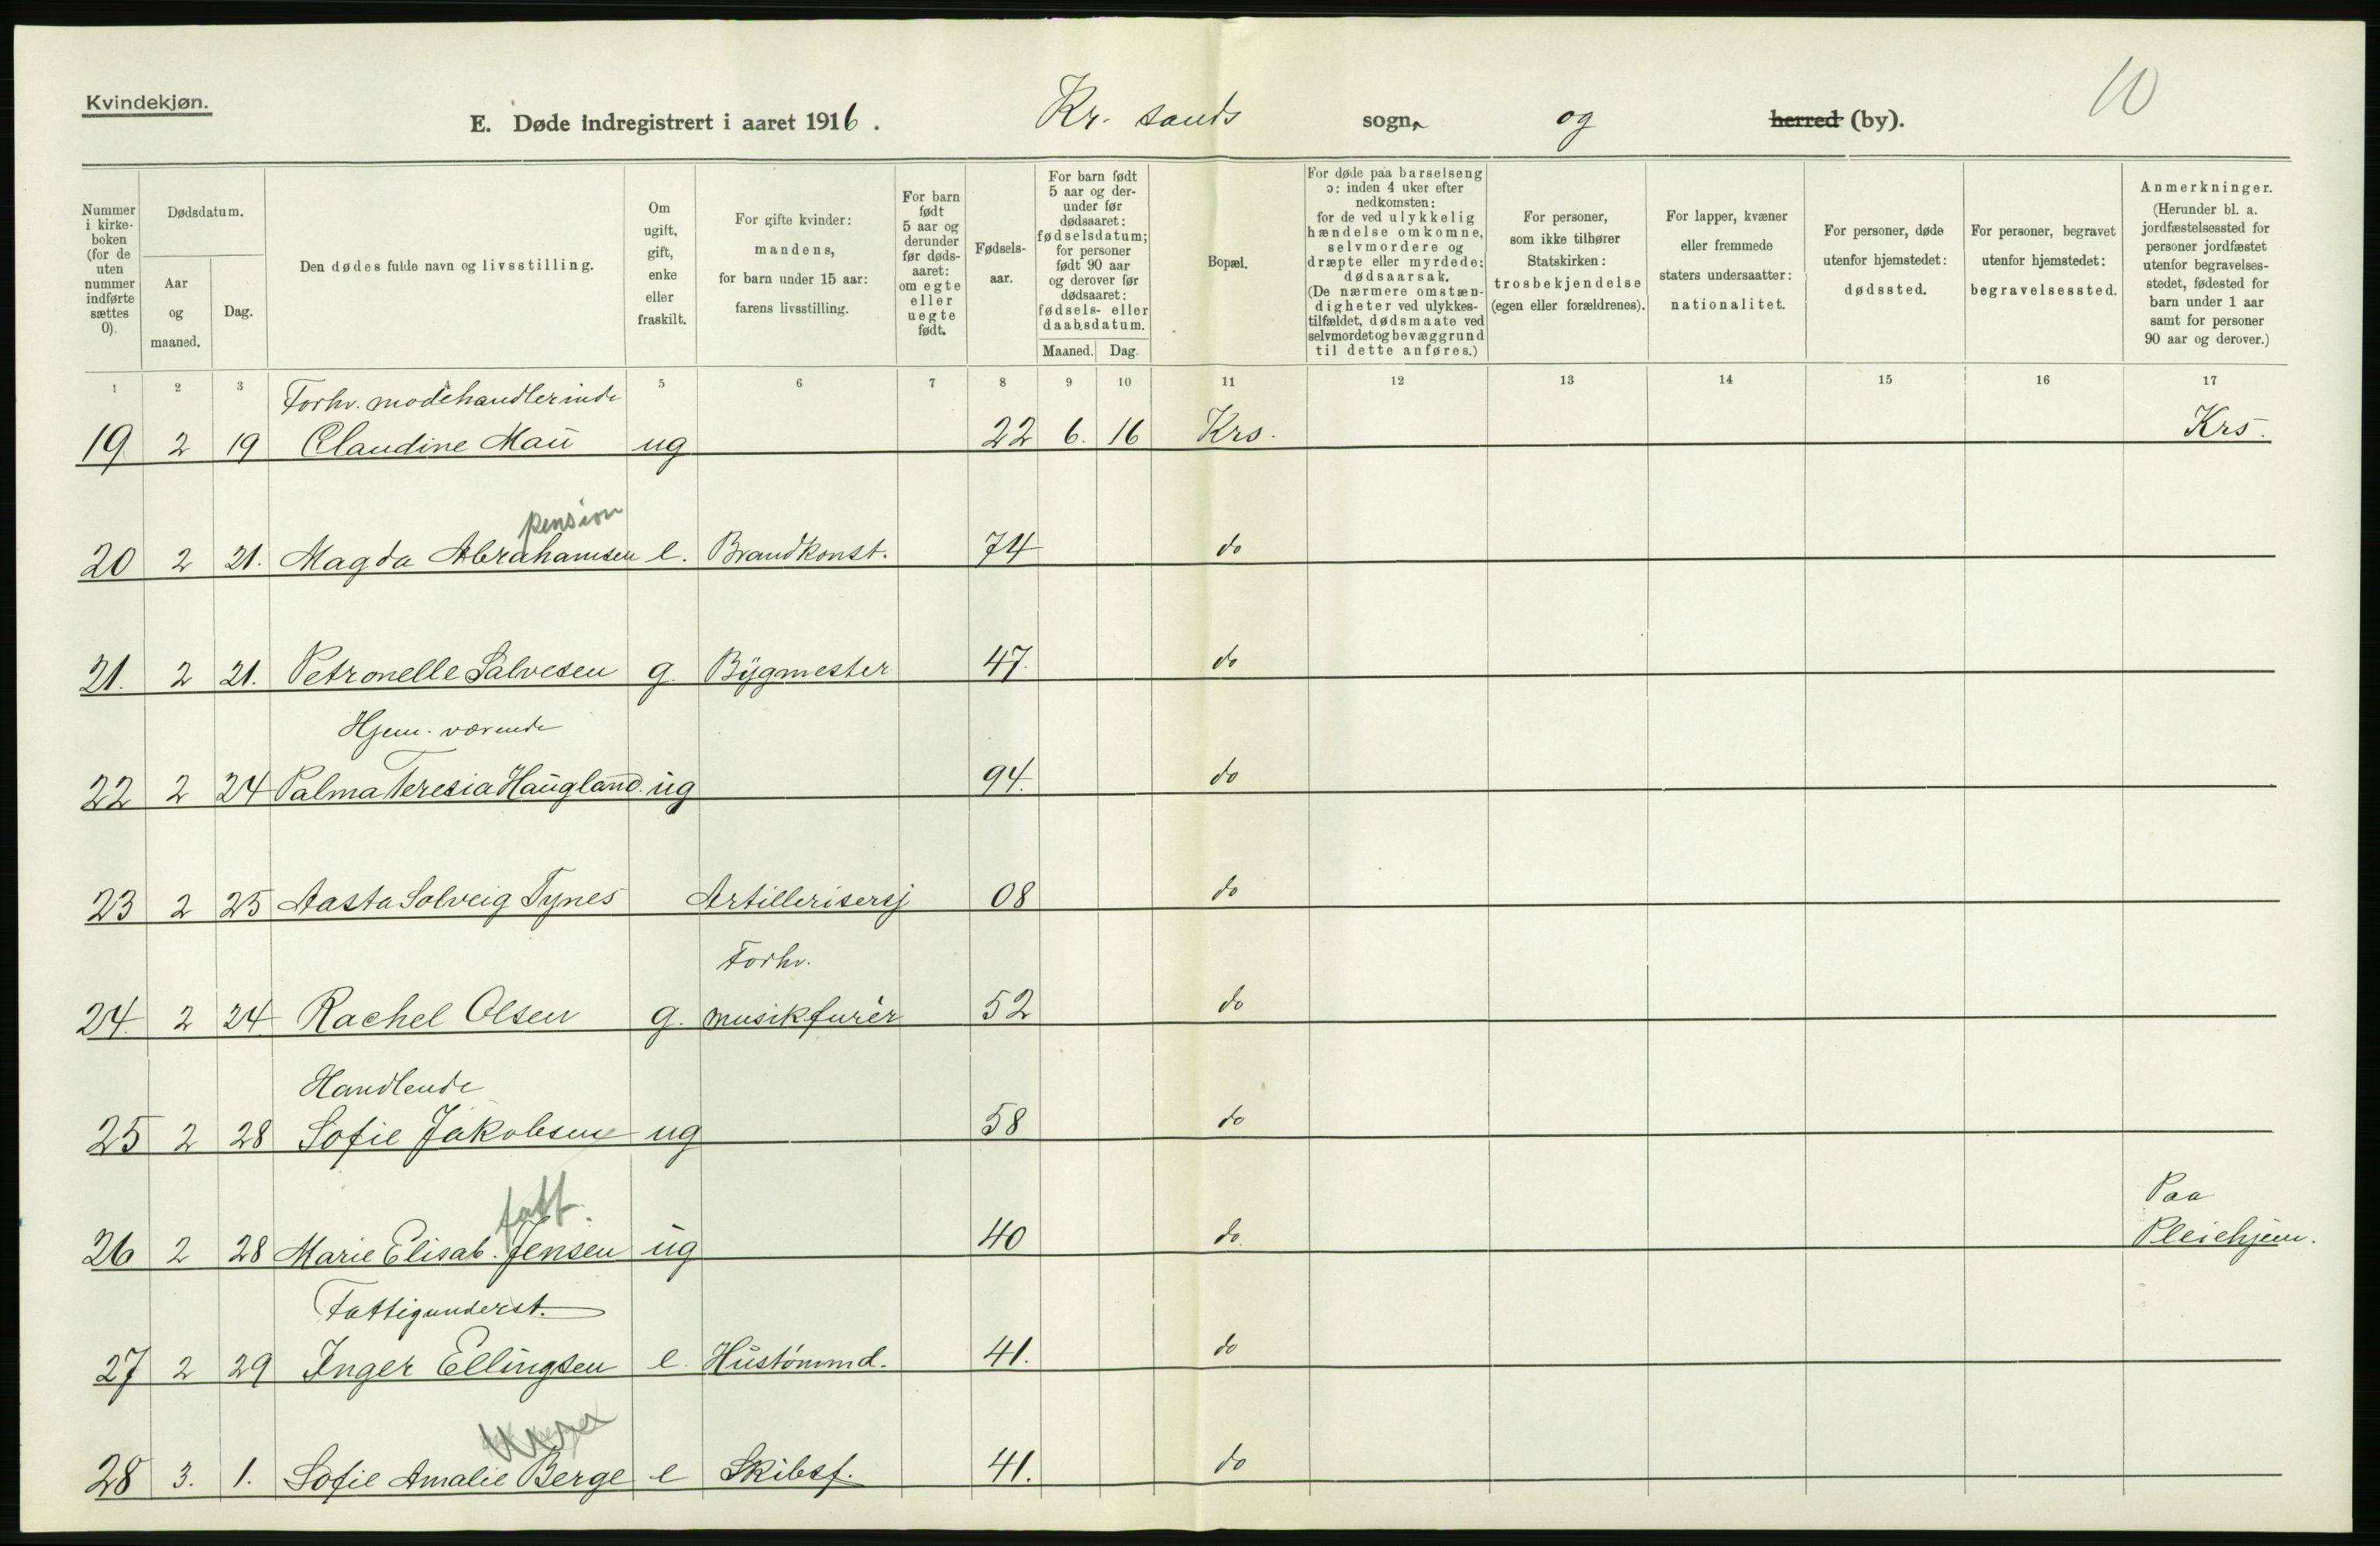 Kvindekjøn.
E. Døde indregistrert i aaret 1916. Kr. sands sogn og herred (by). 10
Nummer i kirke-boken (for de uten nummer indførte sættes 0).
Dødsdatum.
Aar og maaned.
Dag.
Den dødes fulde navn og livsstilling.
Om ugift, gift, enke eller fraskilt.
For gifte kvinder: mandens, for barn under 15 aar: farens livsstilling.
For barn født 5 aar og derunder før døds-aaret: om egte eller uegte født.
Fødsels-aar.
For barn født 5 aar og der-under før dødsaaret: fødselsdatum; for personer født 90 aar og derover før dødsaaret: fødsels- eller daabsdatum.
Maaned. Dag.
Bopæl.
For døde paa barselseng ɔ: inden 4 uker efter nedkomsten: for de ved ulykkelig hændelse omkomne, selvmordere og dræpte eller myrdede: dødsaarsak. (De nærmere omstæn-digheter ved ulykkes-tilfældet, dødsmaate ved selvmordet og bevæggrund til dette anføres.)
For personer, som ikke tilhører Statskirken: trosbekjendelse (egen eller forældrenes).
For lapper, kvæner eller fremmede staters undersaatter: nationalitet.
For personer, døde utenfor hjemstedet: dødssted.
For personer, begravet utenfor hjemstedet: begravelsessted.
Anmerkninger. (Herunder bl. a. jordfæstelsessted for personer jordfæstet utenfor begravelses-stedet, fødested for barn under 1 aar samt for personer 90 aar og derover.)
1 2 3 5 6 7 8 9 10 11 12 13 14 15 16 17
Forhv. modehandlerinde
19 2 19 Claudine Mau ug 22 6. 16 Krs. Krs.
pension
20 2 21. Magda Abrahamsen e. Brandkonst. 74 do
21. 2 21. Petronelle Salvesen g. Bygmester 47. do
Hjem. værende
22 2 24 Palma Teresia Haugland ug 94. do
23 2 25 Aasta Solveig Tynes Artillerisersj 08 do
Forhv.
24. 2 24 Rachel Olsen g. musikfurér 52 do
Handlende
25 2 28 Sofie Jakobsen ug 58 do
fatt. Paa
26 2 28 Marie Elisab. Jensen ug 40 do. Pleiehjem.
Fattigunderst.
27 2 29 Inger Ellingsen e. Hustømmd. 41. do
28 3. 1. Sofie Amalie Berge e Skibsf. 41. do